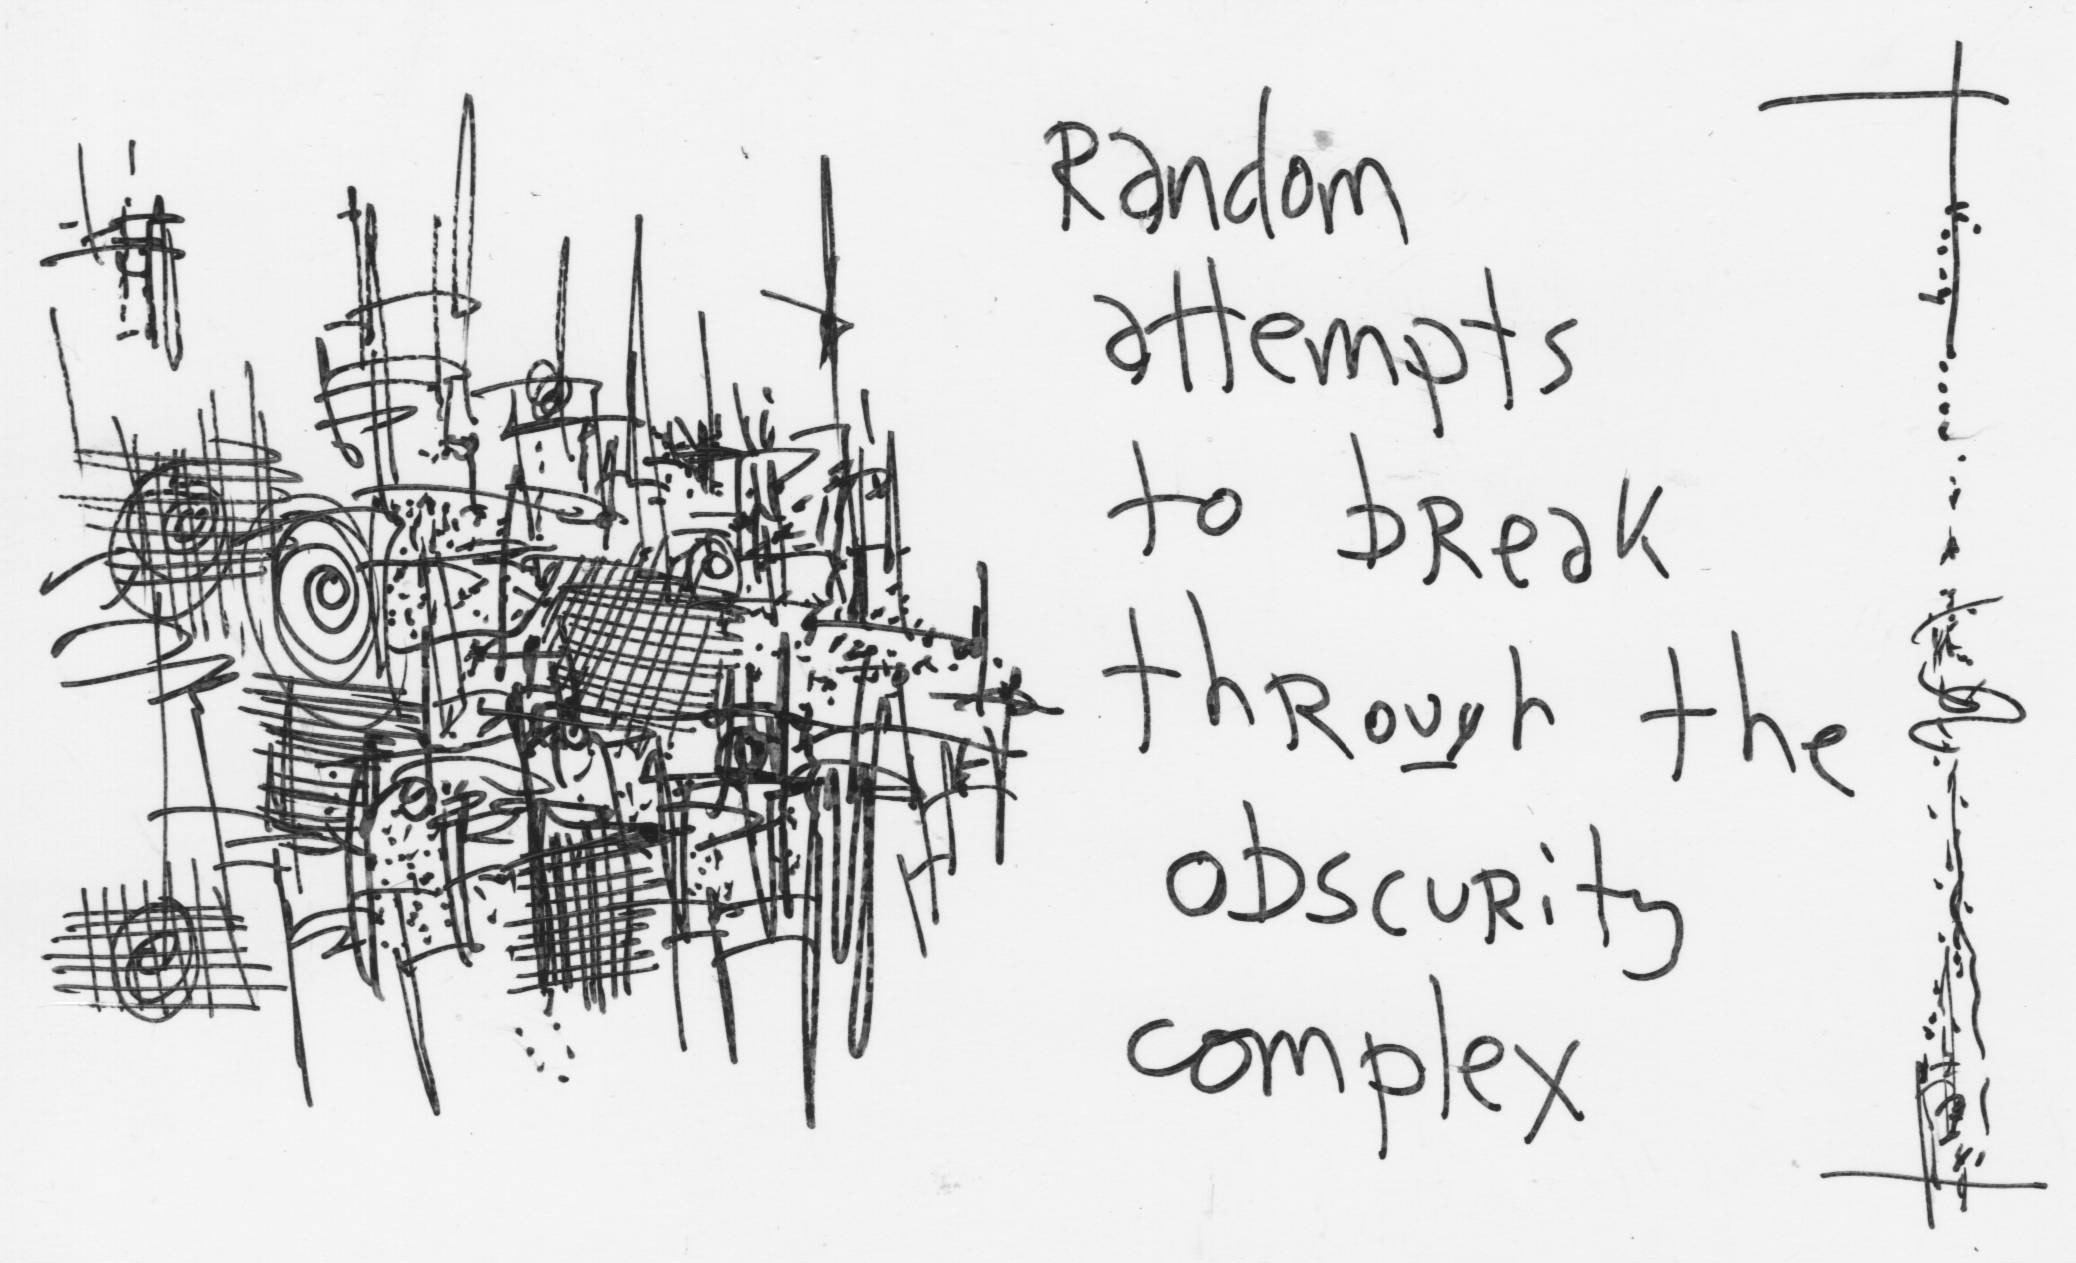 Random
attempts
to break
through the
obscurity
complex